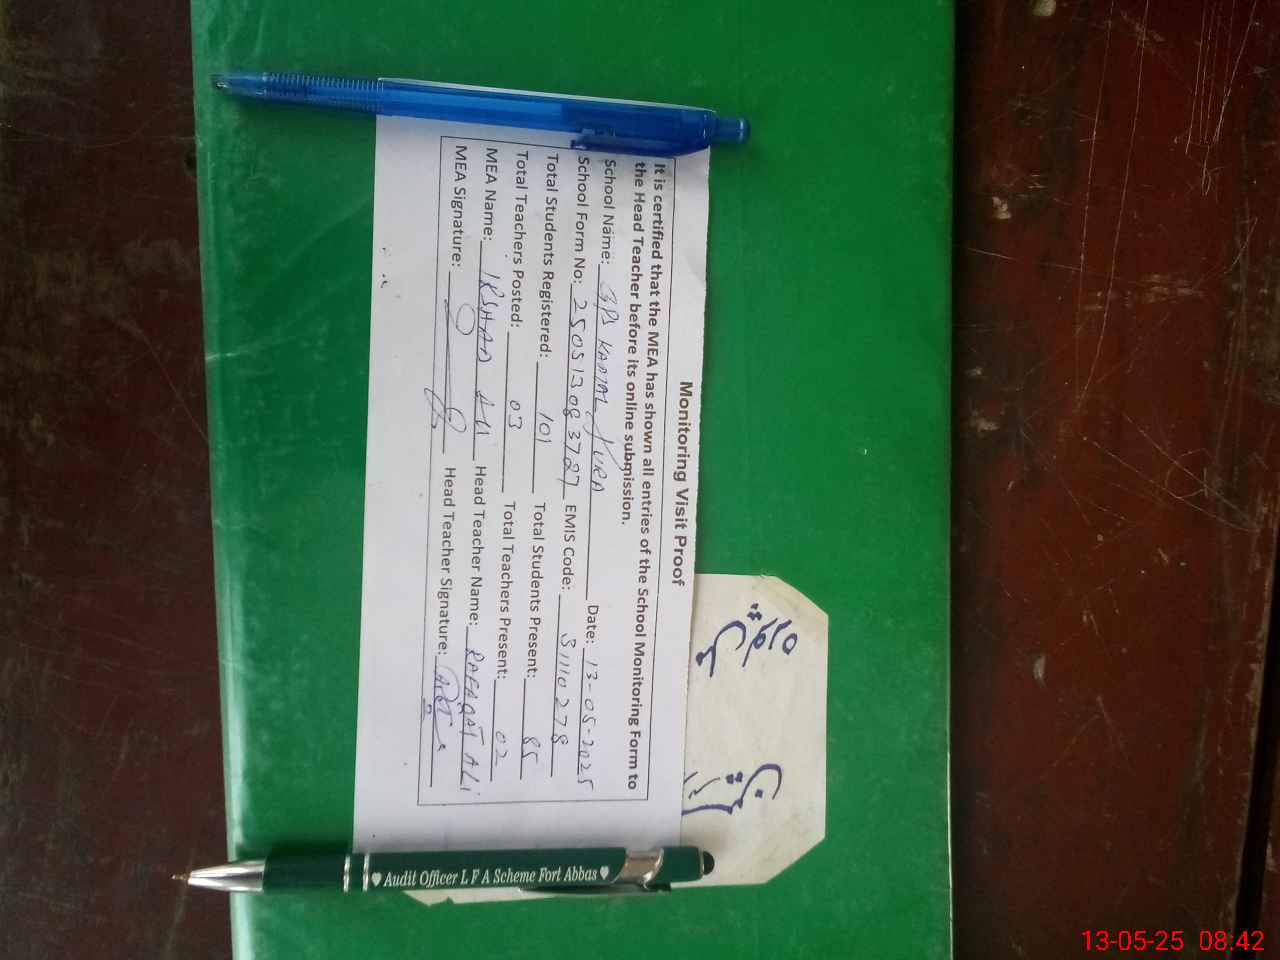 Monitoring Visit Proof
It is certified that the MEA has shown all entries of the School Monitoring Form to
the Head Teacher before its online submission.
School Name: GPS KAMAL PURA Date: 13-05-2025
School Form No: 250513083727 EMIS Code: 31110278
Total Students Registered: 101 Total Students Present: 85
Total Teachers Posted: 03 Total Teachers Present: 02
MEA Name: IRSHAD ALI Head Teacher Name: RAFAQAT ALI
MEA Signature: Head Teacher Signature:
♥ Audit Officer L F A Scheme Fort Abbas ♥
13-05-25 08:42